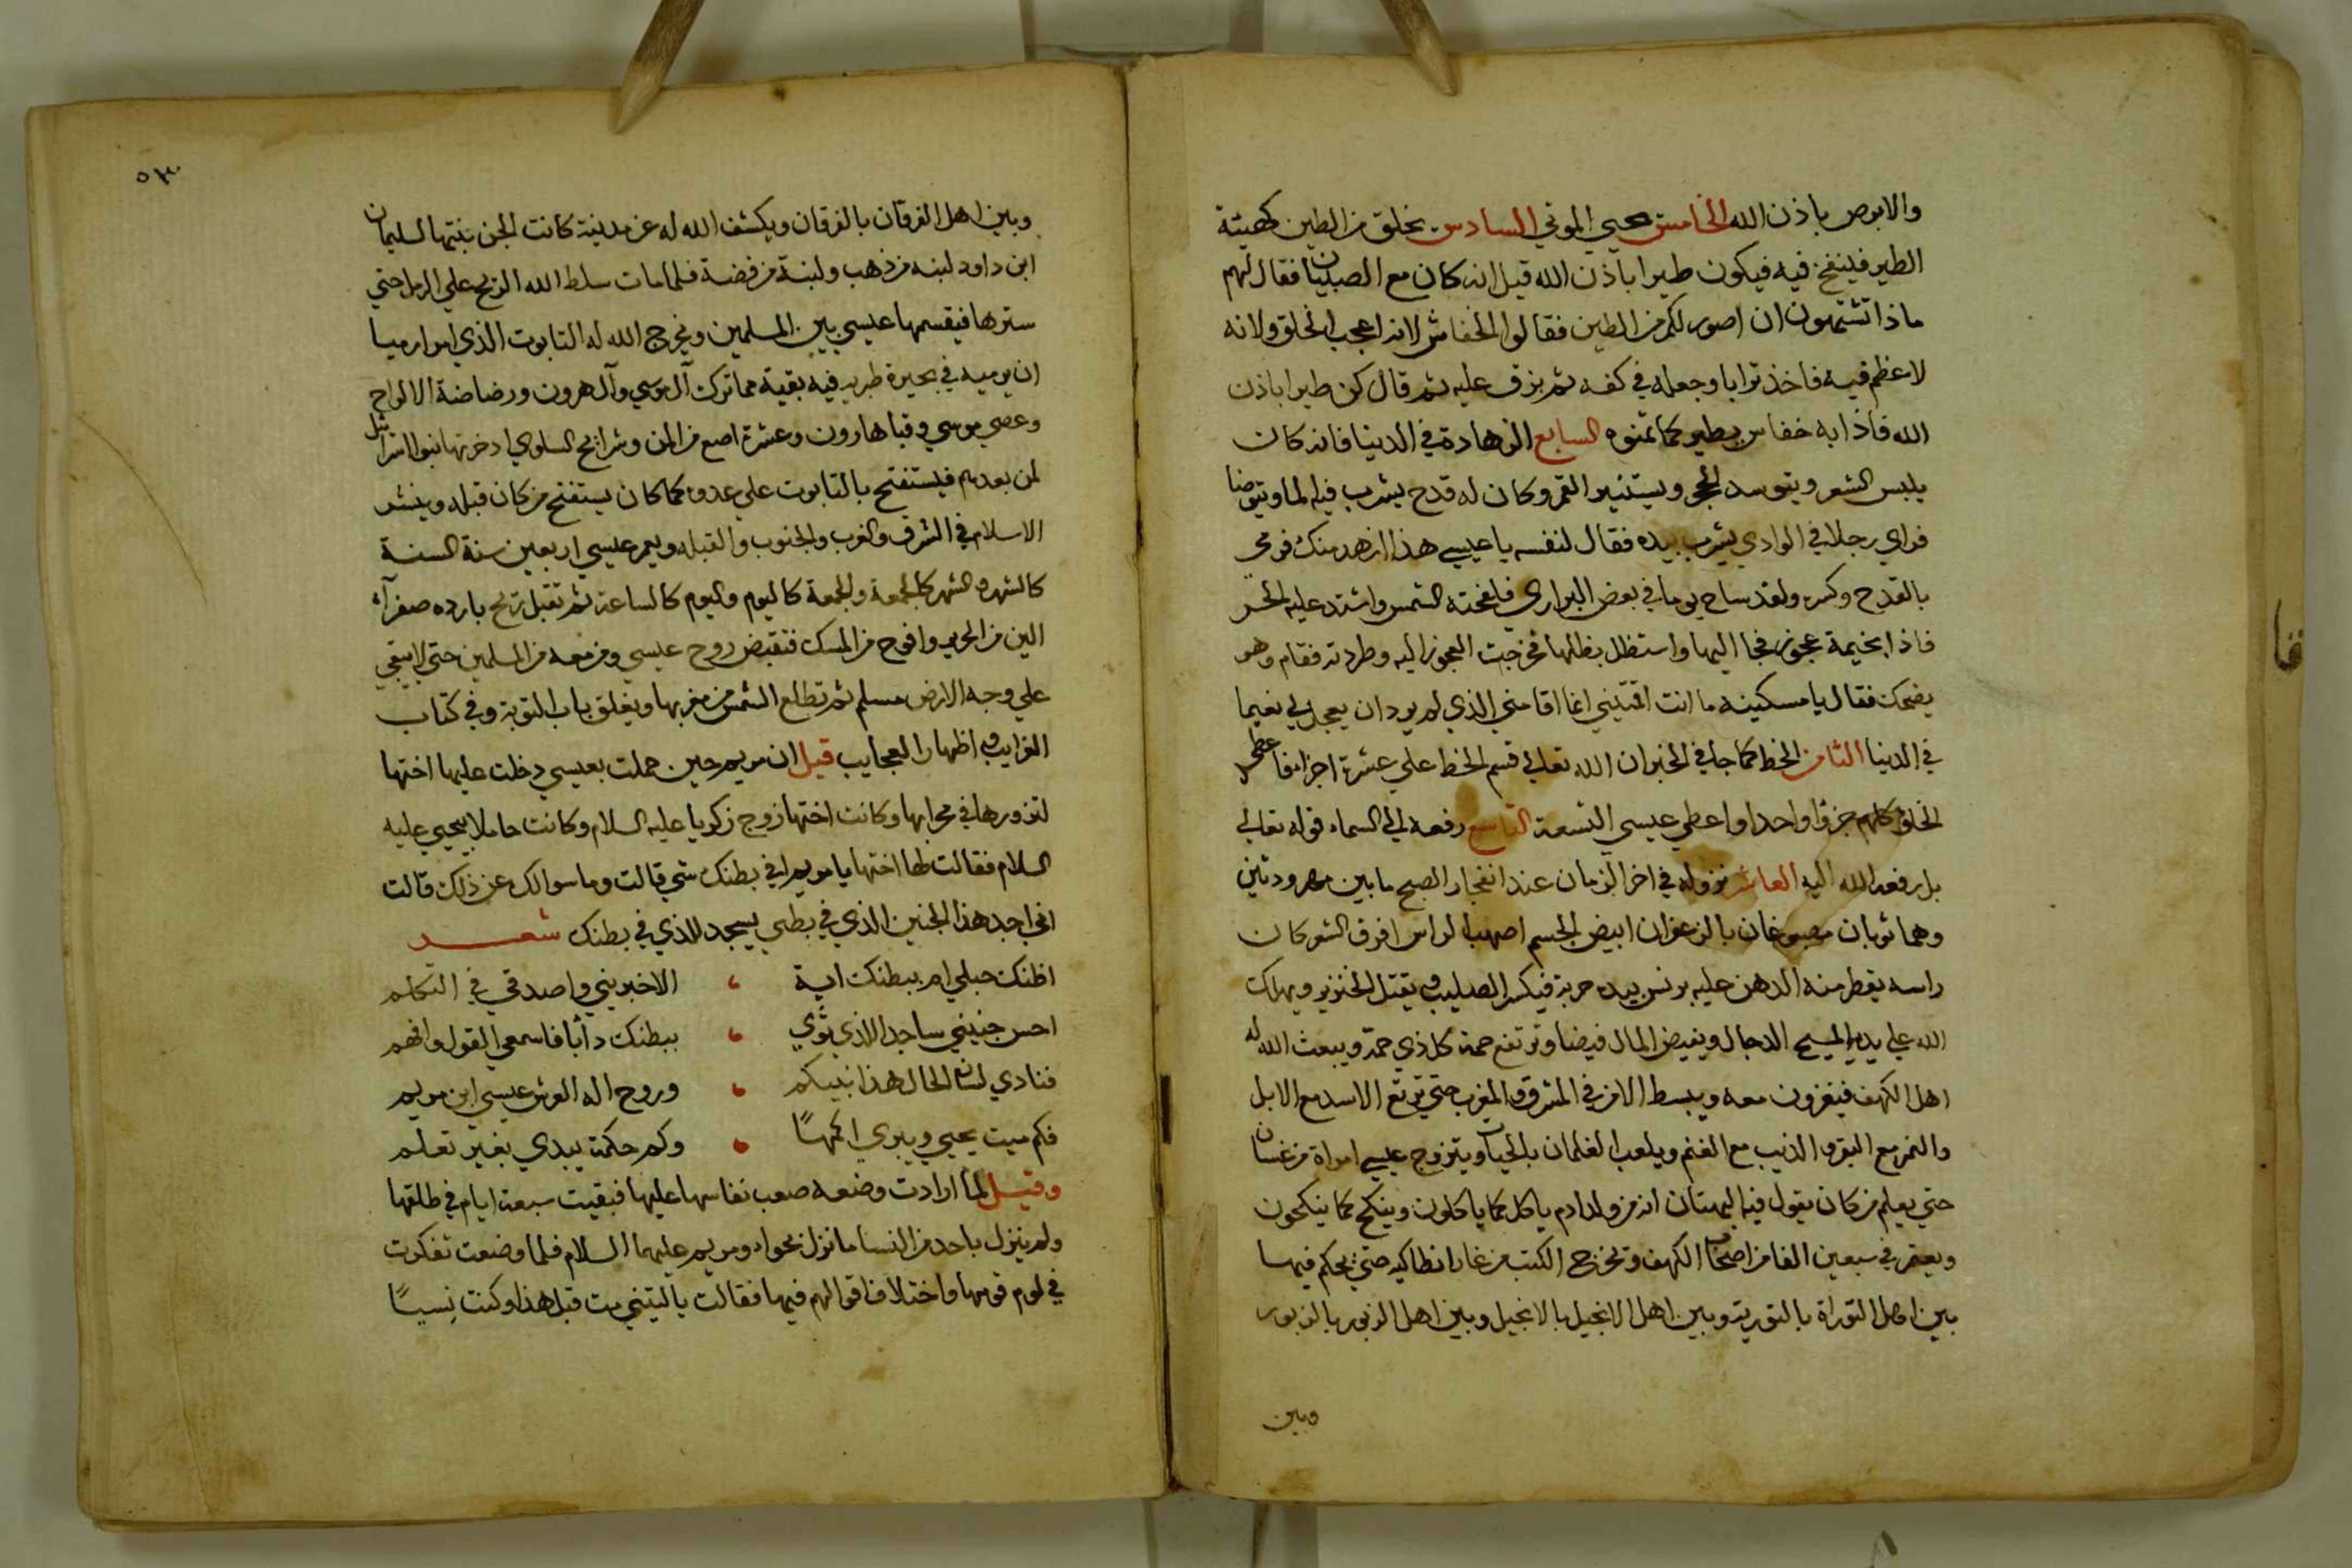 والابرص باذن الله الخامس يحيي الموتي السادس يخلق من الطين كهيئة
الطير فينفخ فيه فيكون طيرا باذن الله قيل انه كان مع الصبيان فقال لهم
ماذا تشتهون ان اصور لكم من الطين فقالوا الخفاش لانه اعجب الخلق ولانه
لا عظم فيه فاخذ ترابا وجعله في كفه ثم بزق عليه ثم قال كن طيرا باذن
الله فاذا به خفاس يطير كما تمنوه السابع الزهادة في الدنيا فانه كان
يلبس الشعر ويتوسد الحجر ويستنير القمر وكان له قدح يشرب فيه الما ويتوضا
فراي رجلا في الوادي يشرب بيده فقال لنفسه يا عيسي هذا ازهد منك فرمي
بالقدح وكسره ولقد ساح يوما في بعض البراري فلفحته الشمس واشتد عليه الحر
فاذا بخيمة عجوز فجا اليها واستظل بظلها فخرجت العجوز اليه وطردته فقام وهو
يضحك فقال يا مسكينه ما انت اقمتيني انما اقامني الذي لم يرد ان يجعل لي نعيما
في الدنيا الثامن الخط كما جا في الخبر ان الله تعالي قسم الخط علي عشرة اجزا فاعطي
الخلق كلهم جزوا واحدا واعطي عيسي التسعة التاسع رفعه الي السماء قوله تعالي
بل رفعه الله اليه العاشر نزوله في اخر الزمان عند انفجار الصبح ما بين مهرودتين
وهما ثوبان مصبوغان بالزعفران ابيض الجسم اصهب الراس افرق الشعر كان
راسه يقطر منه الدهن عليه برنس بيده حربة فيكسر الصليب ويقتل الخنزير ويهلك
الله علي يديه المسيح الدجال ويفيض المال فيضا وترتفع حمة كل ذي حمة ويبعث الله له
اهل الكهف فيغزون معه ويبسط الامن في المشرق والمغرب حتي ترتع الاسد مع الابل
والنمر مع البقر والذيب مع الغنم ويلعب الغلمان بالحيات ويتزوج عيسي امراة من غسان
حتي يعلم من كان يقول فيه البهتان انه من ولد ادم ياكل كما ياكلون وينكح كما ينكحون
ويعتمر في سبعين الفا من اصحاب الكهف وتخرج الكتب من غار انطاكيه حتي يحكم فيها
بين اهل التوراة بالتورية وبين اهل الانجيل بالانجيل وبين اهل الزبور بالزبور
وبين
٥٣
وبين اهل الفرقان بالفرقان ويكشف الله له عن مدينة كانت الجن بنتها لسليمان
ابن داود لبنه من ذهب ولبنة من فضة فلما مات سلط الله الريح علي الرمل حتي
سترها فيقسمها عيسي بين المسلمين ويخرج الله له التابوت الذي امر ارميا
ان يرميه في بحيرة طبريه فيه بقية مما ترك آل موسي وآل هرون ورضاضة الالواح
وعصي موسي وقبا هارون وعشرة اصع من المن وشرايح السلوي ادخرتها بنو اسرائيل
لمن بعدهم فيستفتح بالتابوت علي عدوه كما كان يستفتح من كان قبله وينشر
الاسلام في الشرق والغرب والجنوب والقبله ويعمر عيسي اربعين سنة السنة
كالشهر والشهر كالجمعة والجمعة كاليوم واليوم كالساعة ثم تقبل ريح بارده صفرآء
الين من الحرير وافوح من المسك فتقبض روح عيسي ومن معه من المسلمين حتي لا يبقي
علي وجه الارض مسلم ثم تطلع الشمس من مغربها ويغلق باب التوبة وفي كتاب
الغرايب واظهار العجايب قيل ان مريم حين حملت بعيسي دخلت عليها اختها
لتزورها في محرابها وكانت اختها زوج زكريا عليه السلام وكانت حاملا بيحيي عليه
السلام فقالت لها اختها يا مريم افي بطنك شي قالت وما سوالك عن ذلك قالت
اني اجد هذا الجنين الذي في بطني يسجد للذي في بطنك شعر
اظنك حبلي ام ببطنك اية ، الا خبريني واصدقي في التكلم
احس جنيني ساجدا للذي ثوي ، ببطنك دأبا فاسمعي القول وافهم
فنادي لسان الحال هذا نبيكم ، وروح اله العرش عيسي ابن مريم
فكم ميت يحيي ويبري اكمهًا ، وكم حكمة يبدي بغير تعلم
وقيل لما ارادت وضعه صعب نفاسها عليها فبقيت سبعة ايام في طلقها
ولم ينزل باحد من النسا ما نزل بحواء ومريم عليهما السلام فلما وضعت تفكرت
في لوم قومها واختلاف اقوالهم فيها فقالت يا ليتني مت قبل هذا وكنت نسيًا